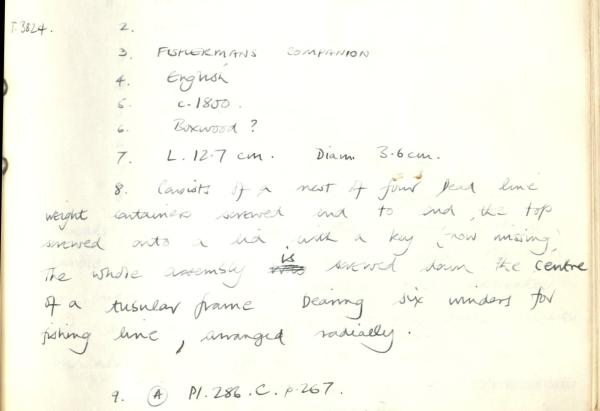 T.3824. 2.
3. FISHERMANS COMPANION
4. English
5. c.1850.
6. Boxwood ?
7. L. 12.7 cm. Diam 3.6 cm.
8. Consists of a nest of four lead line
weight containers screwed end to end, the top
screwed onto a lid, with a key (now missing)
The whole assembly is screwed down the centre
of a tubular frame bearing six winders for
fishing line, arranged radially.
9. (A) Pl. 286. C. p.267.